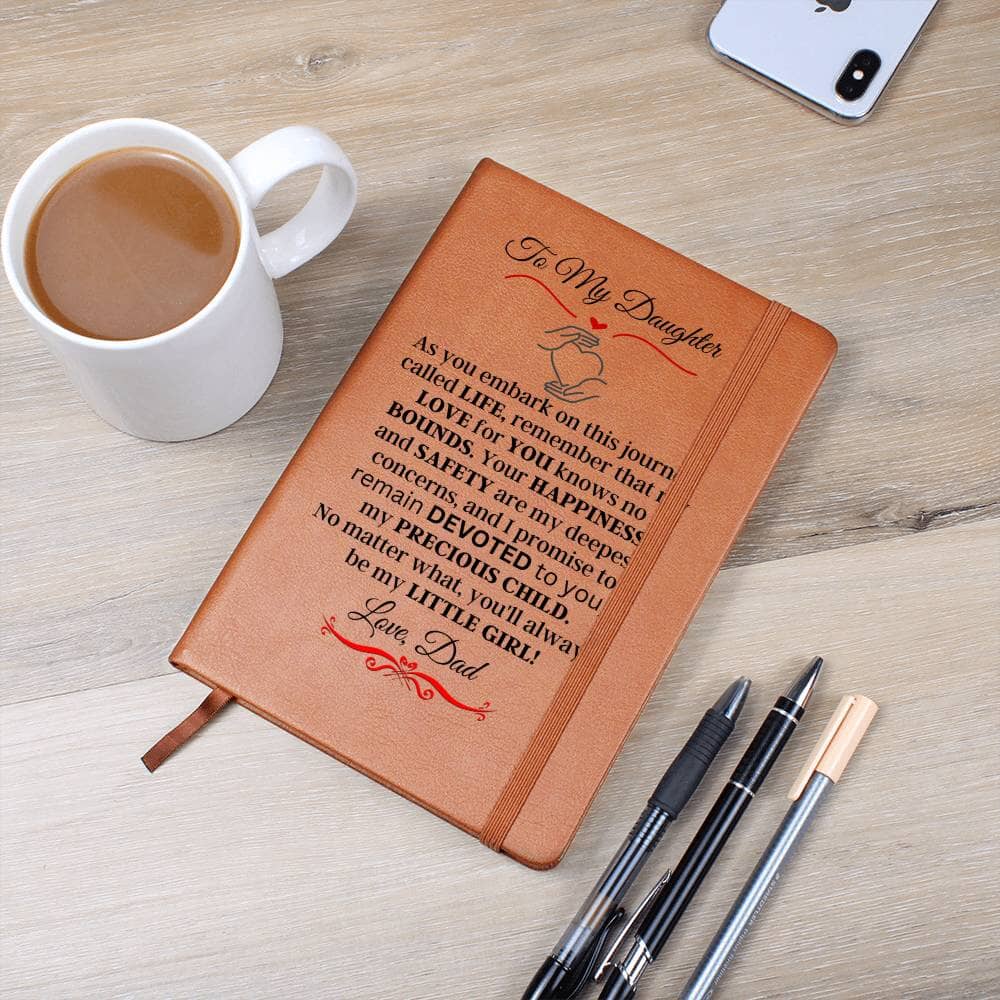 To My Daughter
As you embark on this journ
called LIFE, remember that
LOVE for YOU knows no
BOUNDS. Your HAPPINESS
and SAFETY are my deepes
concerns, and I promise to
remain DEVOTED to you
my PRECIOUS CHILD.
No matter what, you'll alway
be my LITTLE GIRL!
Love, Dad